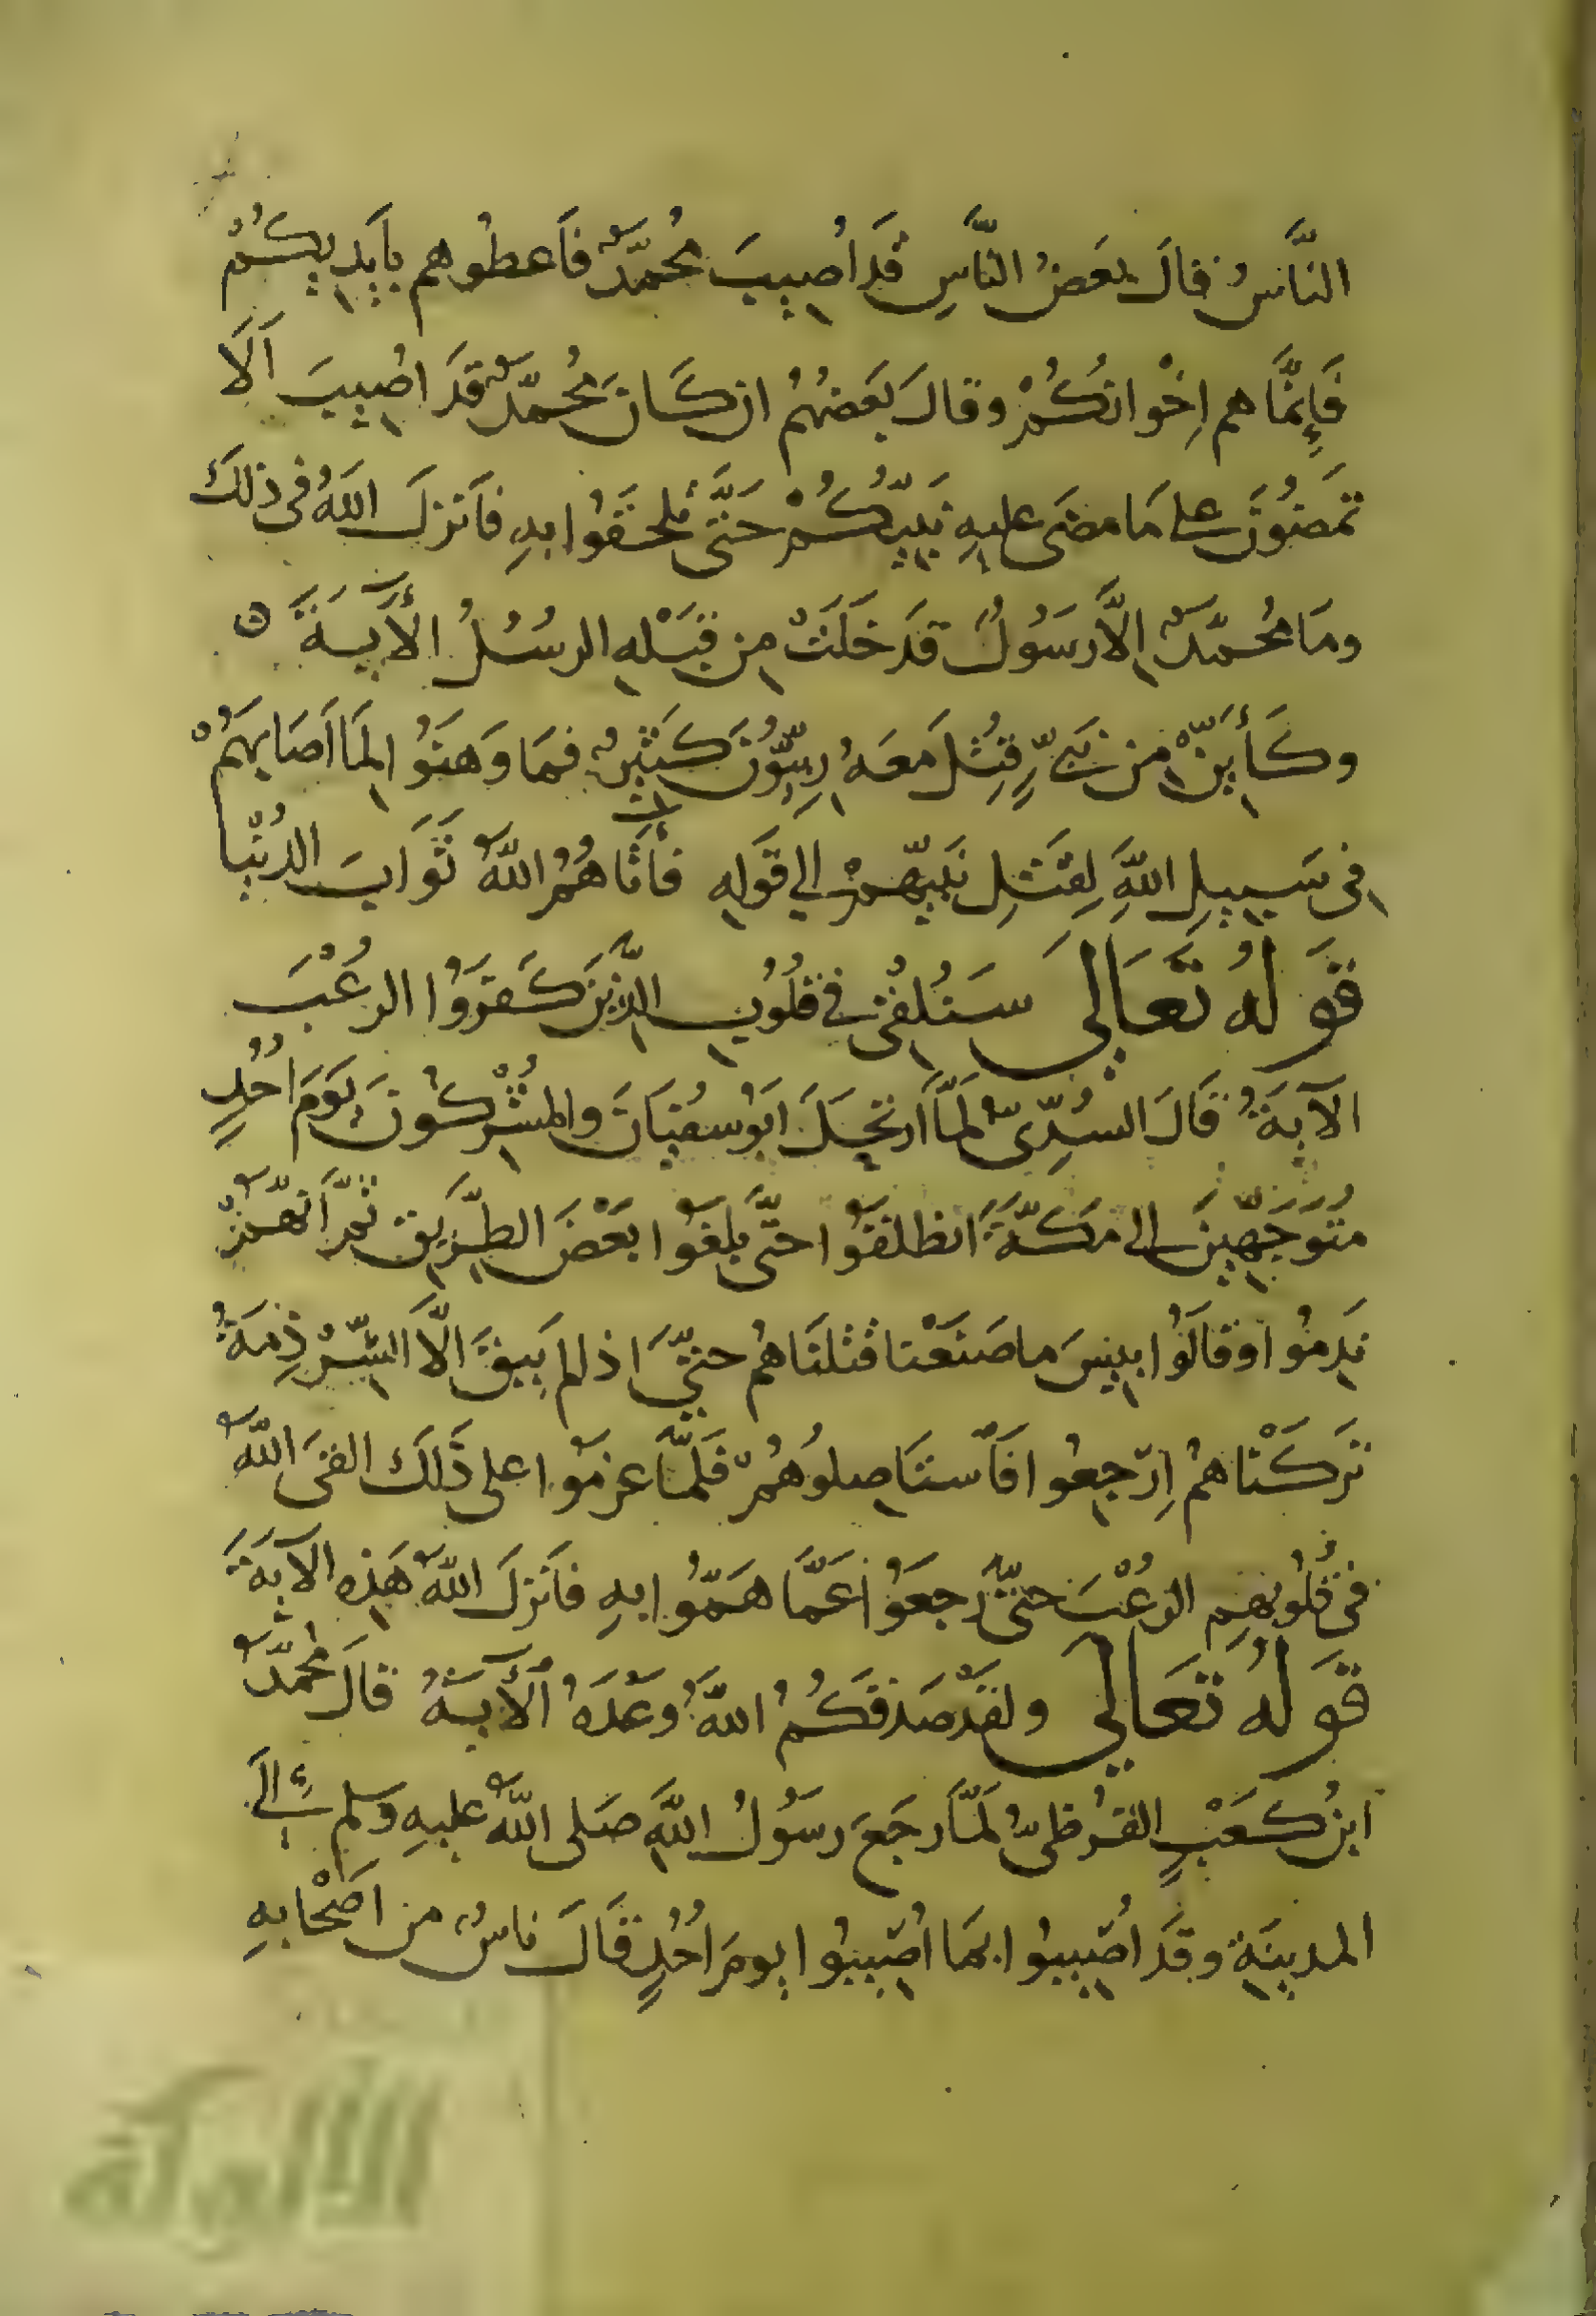 النَّاسُ فقالَ بَعَضُ النَّاسِ قَد اُصِيبَ مُحُمَّدٌ فاَعطُوهم بأَيدِيكُمْ
فَإِنَّمَا هم اِخْوانكُمْ وقالَ بَعَضهُمُ ان كَانَ مُحُمّدٌ قَدَ اصُيبَ اَلَا
تمَضوُنَ على مَا مضَى عليهِ نَبيّكُمْ حَتَّى تلحَقوُا بهِ فاَنزلَ اللهُ فى ذلكَ
ومَا مُحمّدٌ اِلاَّ رسَوُلٌ قَد خَلَتْ مِن قَبْلهِ الرسُلُ الآيَةَ
وكَأَيِنّْ مِن نَبيٍّ قُتِلَ معَهُ رِبيّوُنَ كَثيِرٌ فمَا وَهنَوُا لِمَا اَصَابهَمُْ
فِى سَبيِلِ اللهِ لِقَتلِ نَبيّهمْ الي قَولهِ فأتاهُمُ اللهُ ثوَابَ الدُنْيا
قَولهُ تَعَالي سَنلُقِى في قلُوُبِ الَّذِينَ كَفرَوُا الرعُبَ
الآيةَُ قَالَ السُدِّىّ لَمَّا ارتحَلَ ابَوُ سفُيَانَ والمُشْرِكوُنَ يَوَمَ اُحُدٍ
متُوَجِّهيِنَ الى مَكّةَ انطَلقَوُا حتَّى بلغَوُا بَعْضَ الطَّرِيق ثمَّ انَّهمْ
نَدِمُوا وقالَوُا بِيسَ ما صَنَعْنا قتَلنَاهُم حتيّ اذ لم يَبِقَ الَّا الشِّرْذِمَةُ
تَركَنْاهُم اِرْجعِوُا فَاستَاصِلوُهُمْ فَلَمَّا عزمَوُا على ذَلكَ القىَ اللهُ
فى قُلُوبهِم الرعُبَ حتىّ رجعَوُا عَمَّا هَمّوُا بهِ فاَنزلَ اللهُ هَذِه الآيةَ
قَولهُ تَعَالي ولقَدْ صَدَقكُمُ اللهُ وَعَدَهُ الآيَةُ قالَ مُحمدّ
ابنُ كعَبٍ القُرظىّ لَمّاَ رجَعَ رسَوُلُ اللهِ صَلى اللهُ عليهِ وسلم اِلىَ
المدِينَةِ وقَدَ اُصِيبوُا بِمَا اُصِيبوُا يومَ اُحُدٍ قَالَ ناسٌ من اصَحْابهِ
الألوكة